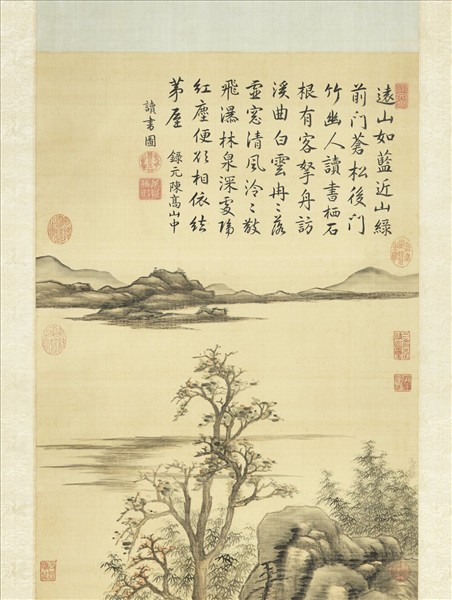 遠山如藍近山綠
前門蒼松後門
竹幽人讀書栖石
根有客拏舟訪
溪曲白雲冉〻落
虛窓清風泠〻散
飛瀑林泉深處隔
紅塵便欲相依結
茅屋 錄元陳高山中
讀書圖